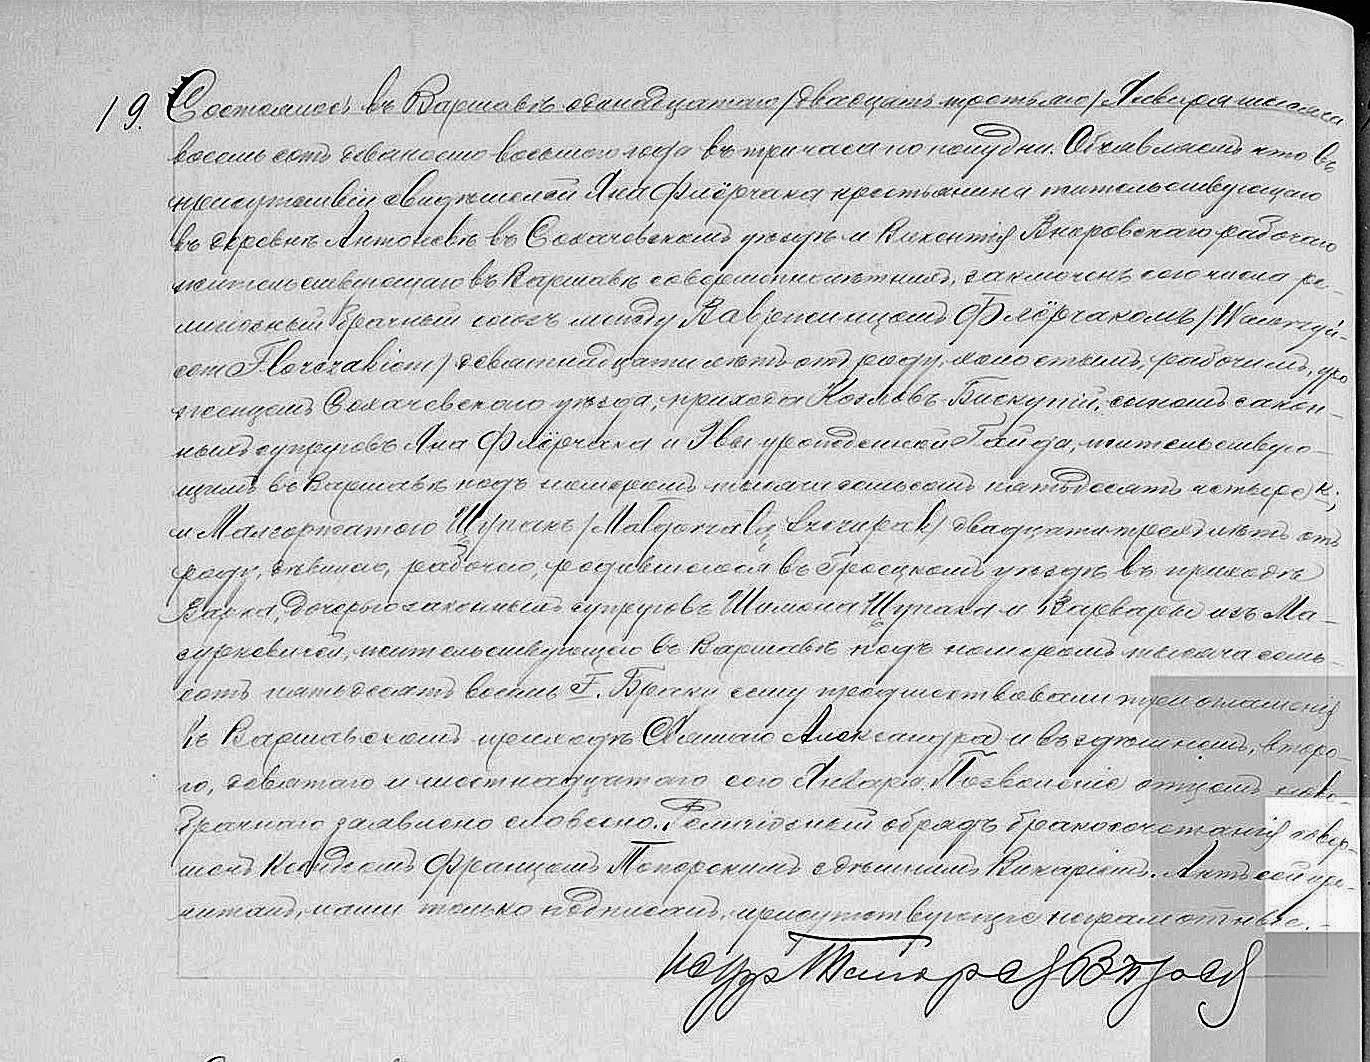 19. Состоялось въ Варшавѣ одинадцатаго /двадцать третьяго/ Января тысяча
восемьсотъ девяносто восьмого года въ три часа по полудни. Объявляемъ что въ
присутствіи свидѣтелей Яна Флёрчака крестьянина жительствующаго
въ деревнѣ Антоневѣ въ Сохачевскомъ уѣздѣ и Викентія рабочаго
жительствующаго въ Варшавѣ совершеннолѣтнихъ, заключенъ сего числа ре-
лигіозный брачный союзъ между Вавржинцемъ Флёрчакомъ /Wawrzyń-
cem Florczakiem/ девятнадцати лѣтъ отъ роду, холостымъ, рабочимъ, уро
женцемъ Сохачевскаго уѣзда, прихода Козловъ-Бискупій, сыномъ закон-
ныхъ супруговъ Яна Флёрчака и Эвы урожденной Гайда, жительствую-
щимъ въ Варшавѣ подъ номеромъ тысяча семьсотъ пятьдесятъ четыре
и Малгоржатою Щупакъ /Małgorzatą Szczupak/ двадцати трехъ лѣтъ отъ
роду, дѣвицею, рабочею, родившеюся въ Гроецкомъ уѣздѣ въ приходѣ
Варка, дочерью законныхъ супруговъ Шимона Щупака и Варвары изъ Ма-
зуркевичей, жительствующею въ Варшавѣ подъ номеромъ тысяча семь-
сотъ пятьдесятъ восемь Г. Браку сему предшествовали три оглашенія
въ Варшавскомъ приходѣ Святаго Александра и въ здѣшнемъ, второ-
го, девятаго и шестнадцатаго сего Января. Позволеніе отцомъ ново-
брачнаго заявлено словесно. Религіозный обрядъ бракосочетанія совер-
шенъ Ксендзомъ Францомъ Топорскимъ здѣшнимъ Викаріемъ. Актъ сей про-
читанъ, нами только подписанъ, присутствующіе неграмотные.-